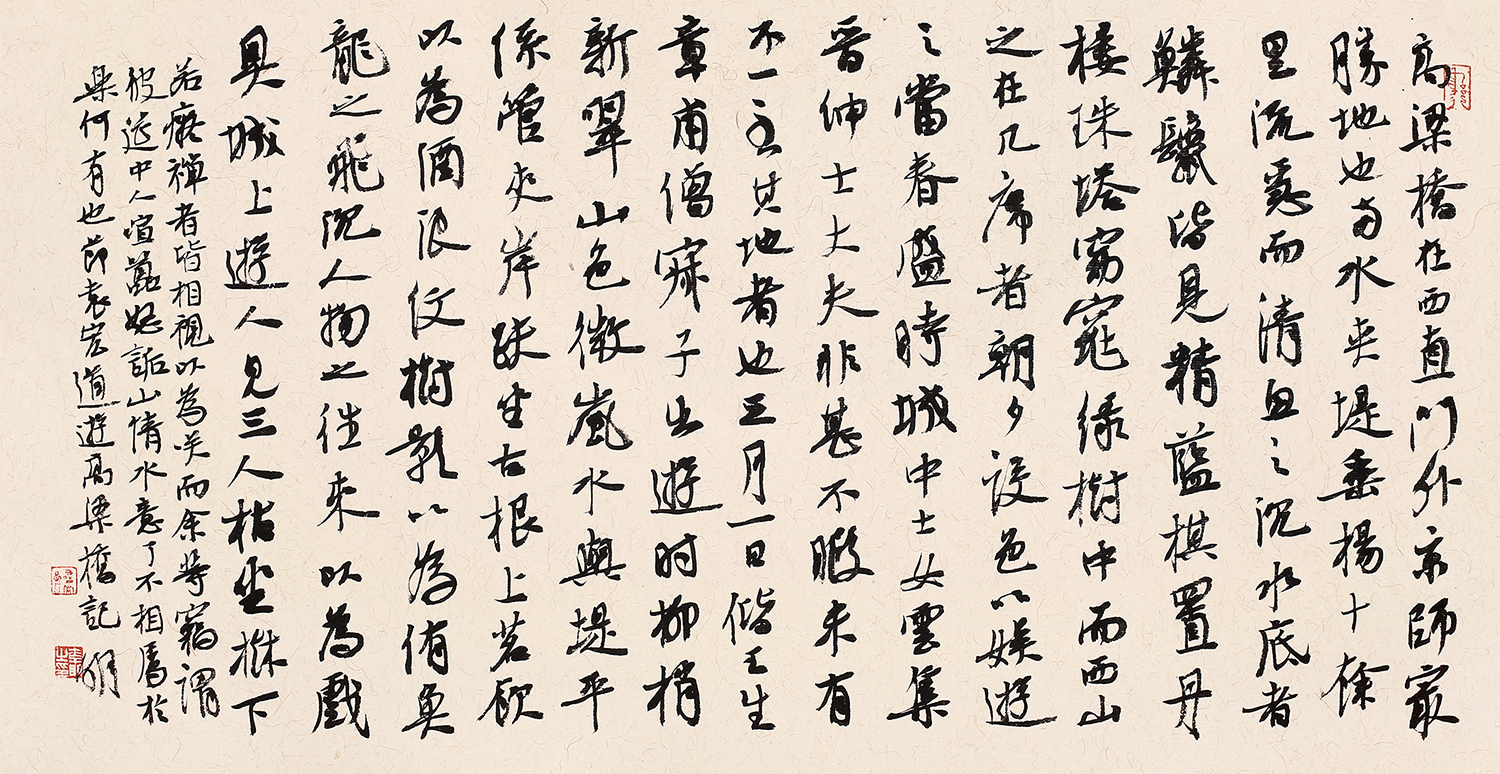 高梁橋在西直門外京師最
勝地也兩水夾堤垂楊十餘
里流急而清魚之沉水底者
鱗鬣皆見精藍棋置丹
樓珠塔窈窕綠樹中而西山
之在几席者朝夕設色以娛遊
人當春盛時城中士女雲集
晉伸士大夫非甚不暇未有
不一至其地者也三月一日偕王生
章甫僧寂子出遊時柳梢
新翠山色微嵐水與堤平
係管夾岸趺坐古根上茗飲
以為酒浪紋樹影以為侑魚
龍之飛沉人物之往來以為戲
具城上遊人見三人枯坐樹下
若癡禪者皆相視以為笑而余等竊謂
彼筵中人喧囂怒詬山情水意了不相屬於
樂何有也節袁宏道遊高梁橋記 明